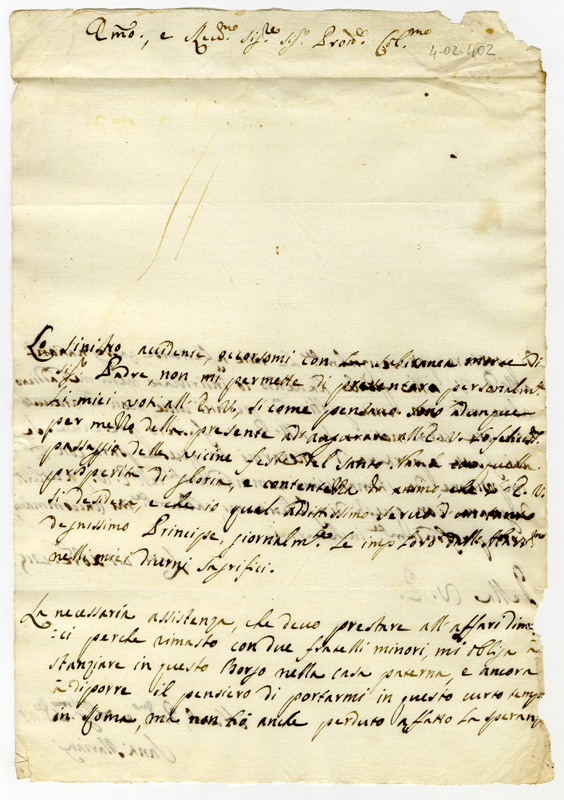 Ill.mo, e Rev.mo Sig.re Sig.r Pron. Col.mo
4-02-402
Lo sinistro accidente, occorsomi con la subitanea morte di
Sig.r Padre, non mi permette di presentare personalm.te
i miei voti all'E.V., si come pensavo. Sono adunque
per mezzo della presente ad augurare all'E.V. lo felice
passaggio delle vicine feste del Santo Natale con quella
prosperità di gloria, e contentezza di animo che l'E.V.
si desidera, e che io qual servo di
degnissimo Principe, giornalm.te Le imploro dalle
nelli miei diurni sagrifici.
La necessaria assistenza, che devo prestare all'affari dime
:ci perche rimasto con due fratelli minori, mi obliga à
stanziare in questo Borgo nella casa paterna, e ancora
à diporre il pensiero di portarmi in questo curto tempo
in Roma, ma non hò anche perduto affatto la speran